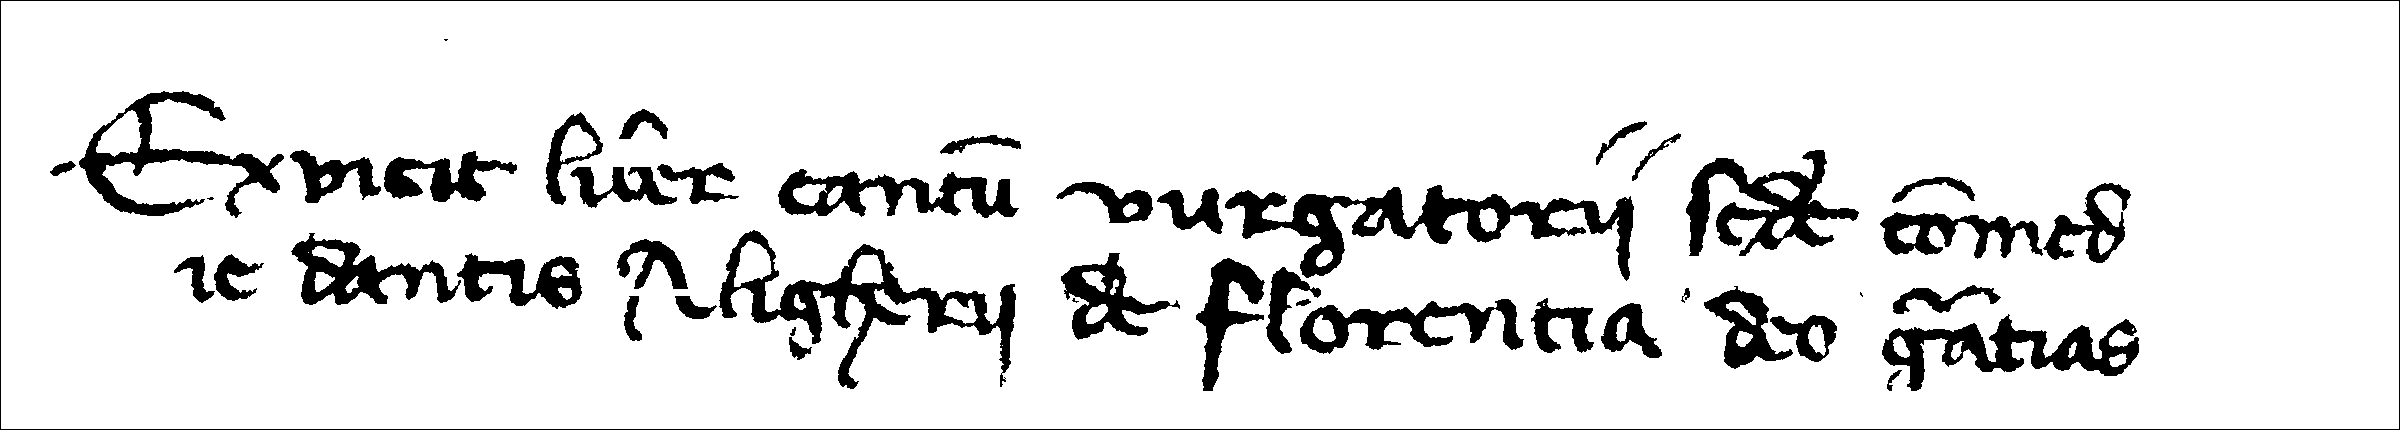 Expicit liber cantū purgatorii scde cōmed
ie dantis Aligherii de florentia deo gr̄atias